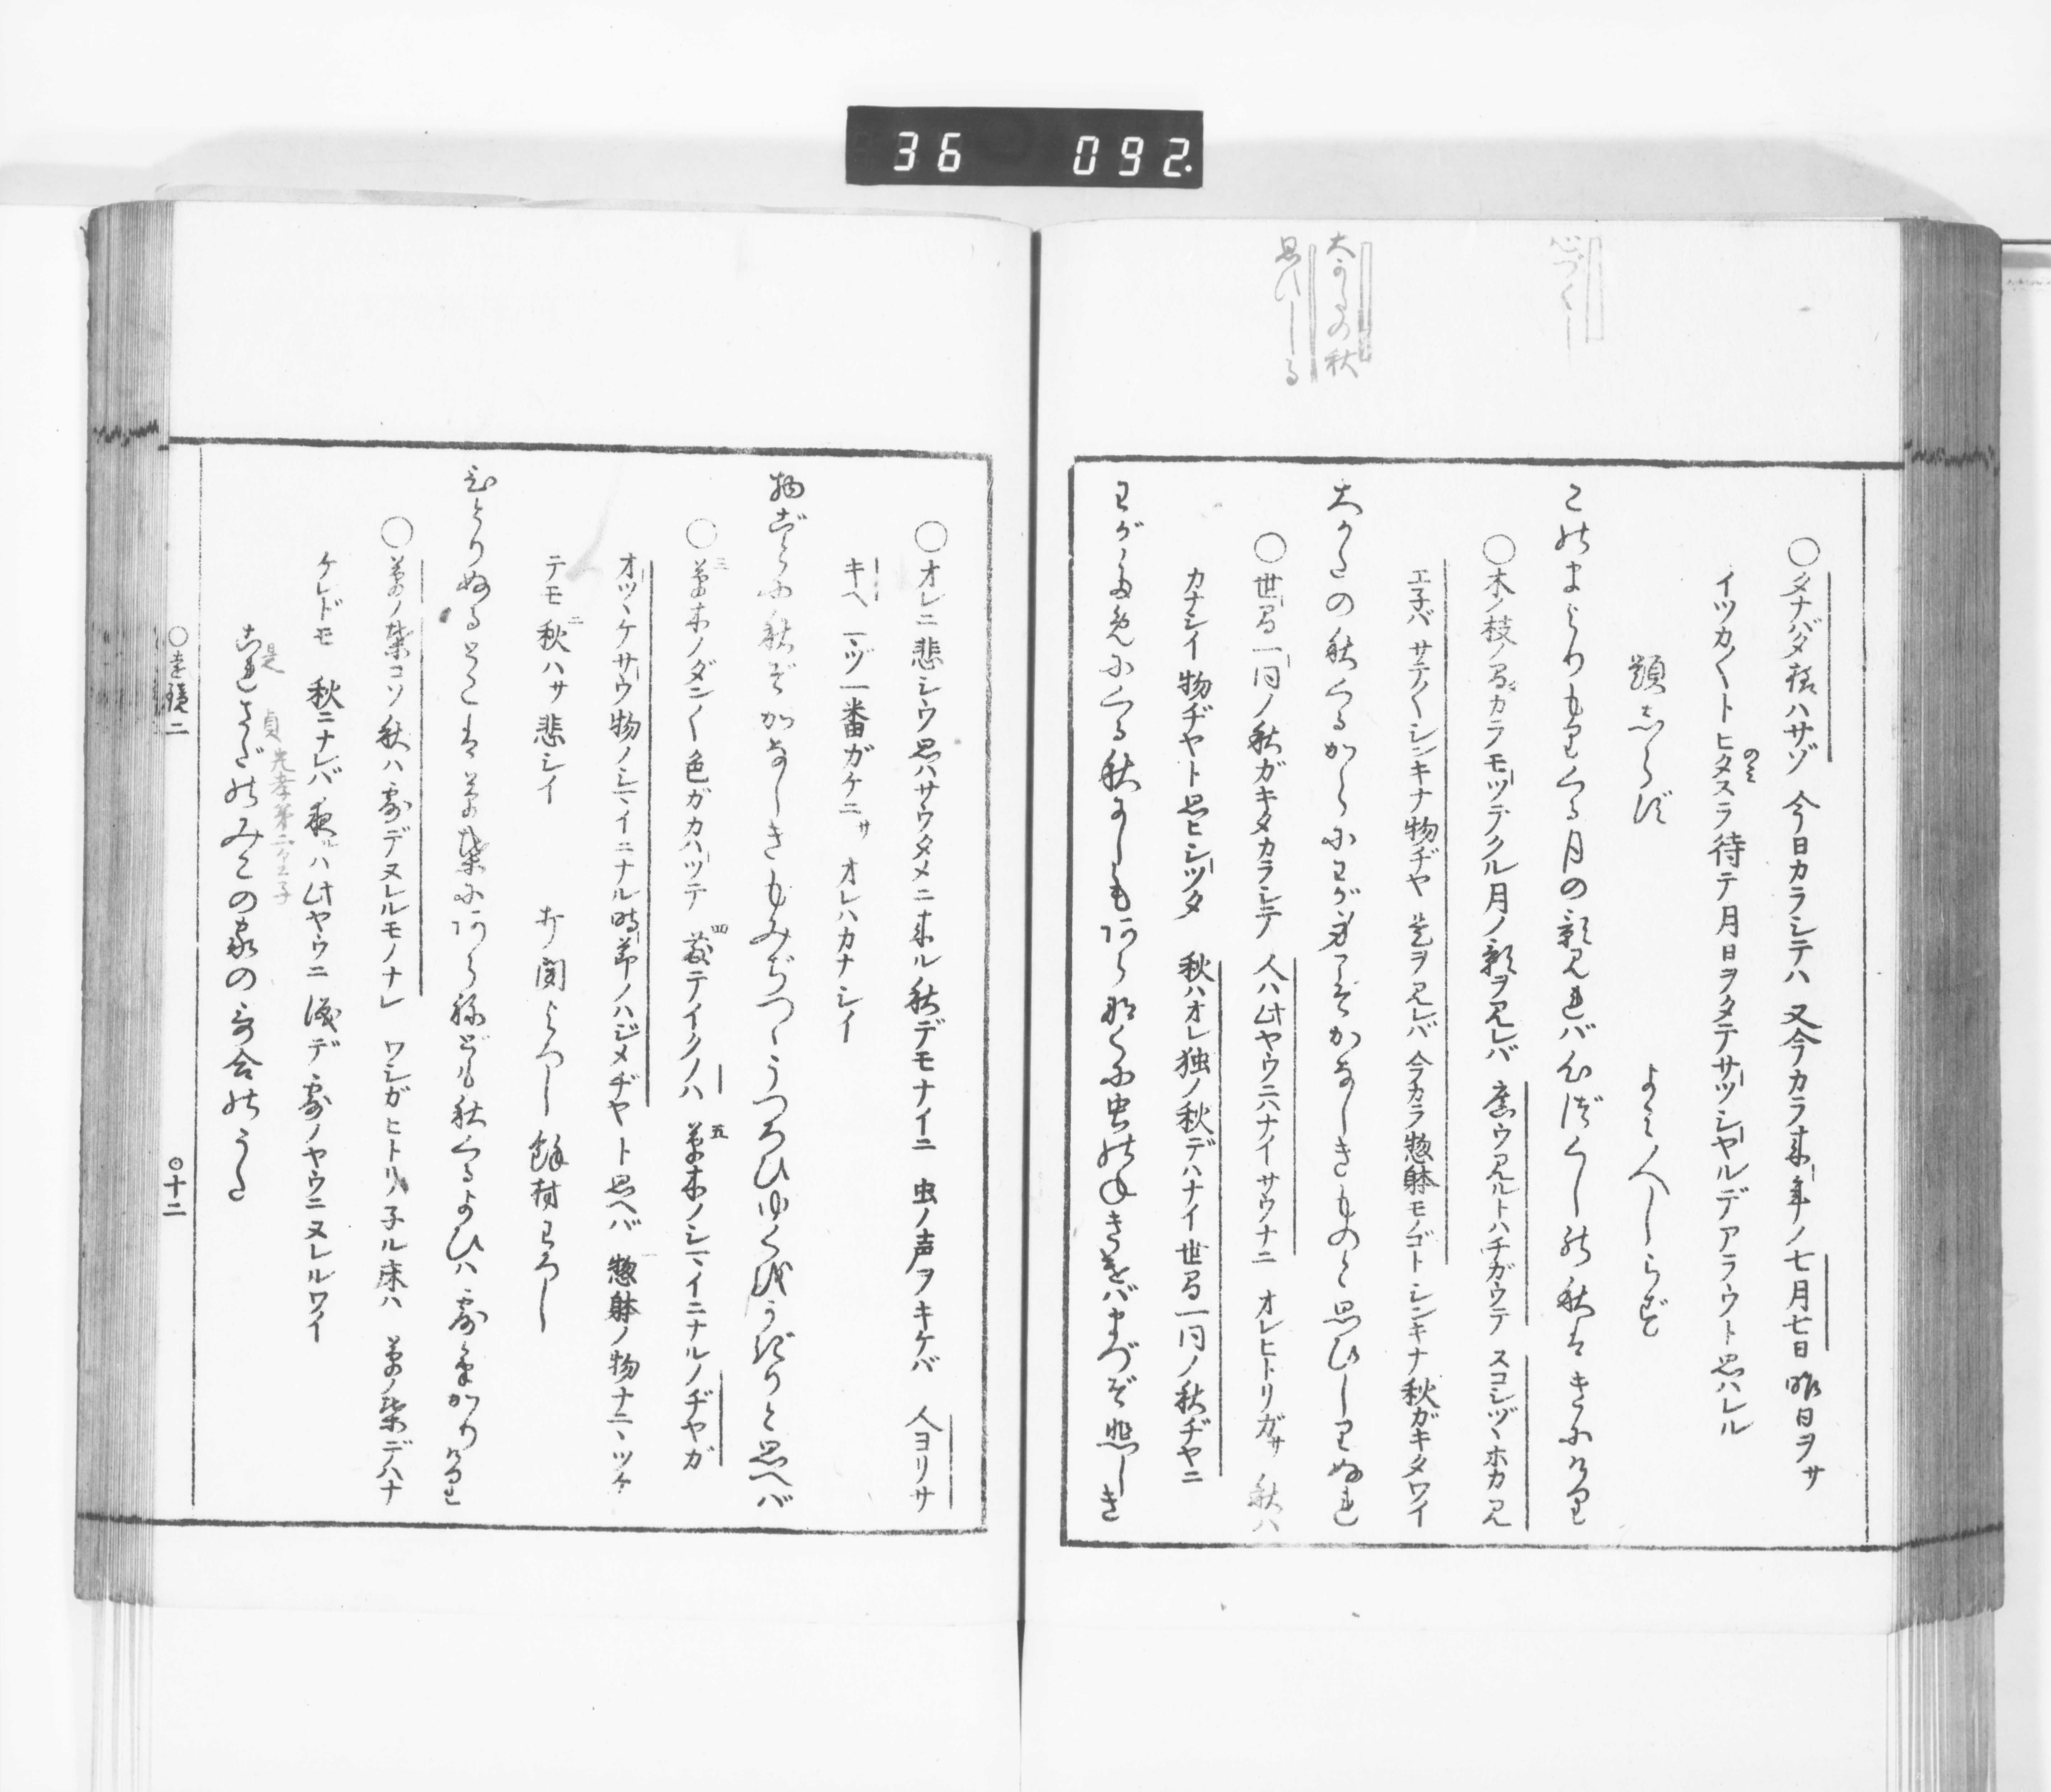 36 092.
心づくし
大かたの秋
思ひしる
○タナバタ様ハサゾ 今日カラシテハ 又今カラ来年ノ七月七日 昨日ヲサ
イツカ〱トヒタスラ待テ月日ヲタテサツシヤルデアラウト思ハレル
のミ
題しらず よみ人しらず
このまよりもりくる月の影見れば心づくしの秋はきにけり
○木ノ枝ノ間カラモツテクル月ノ影ヲ見レバ 庶ウ見ルトハチガウテ スコシヅヽホカ見
エ子バ サテ〱シンキナ物ヂヤ 是ヲ見レバ 今カラ惣躰モノゴトシンキナ秋ガキタワイ
大かたの秋くるからにわが身こそかなしきものと思ひしりぬれ
○世間一同ノ秋ガキタカラシテ 人ハ此ヤウニハナイサウナニ オレヒトリガサ 秋ハ
カナシイ物ヂヤト思ヒシツタ 秋ハオレ独ノ秋デハナイ世間一同ノ秋ヂヤニ
わがためにくる秋にしもあらなくに虫のねきけばまづぞ悲しき
○オレニ悲シウ思ハサウタメニ来ル秋デモナイニ 虫ノ声ヲキケバ 人ヨリサ
キヘ マヅ一番ガケニサ オレハカナシイ
物ごとに秋ぞかなしきもみぢつゝうつろひゆくをかぎりと思へば
○三草木ノダン〱色ガカハツテ 四落テイクノハ 五草木ノシマイニナルノヂヤガ
オツヽケサウ物ノシマイニナル時節ノハジメヂヤト思ヘバ 一惣躰ノ物ナニヽツケ
テモ 二秋ハサ悲シイ 打聞よろし 餘材わろし
ひとりぬるとこは草葉にあらねども秋くるよひは露けかりけり
○草ノ葉コソ秋ハ露デヌレルモノナレ ワシガヒトリ子ル床ハ 草ノ葉デハナ
ケレドモ 秋ニナレバ夜ルハ此ヤウニ 涙デ露ノヤウニヌレルワイ
是 貞 光孝第二皇子
これさだのみこの家の哥合のうた
○遠鏡二 ○十二